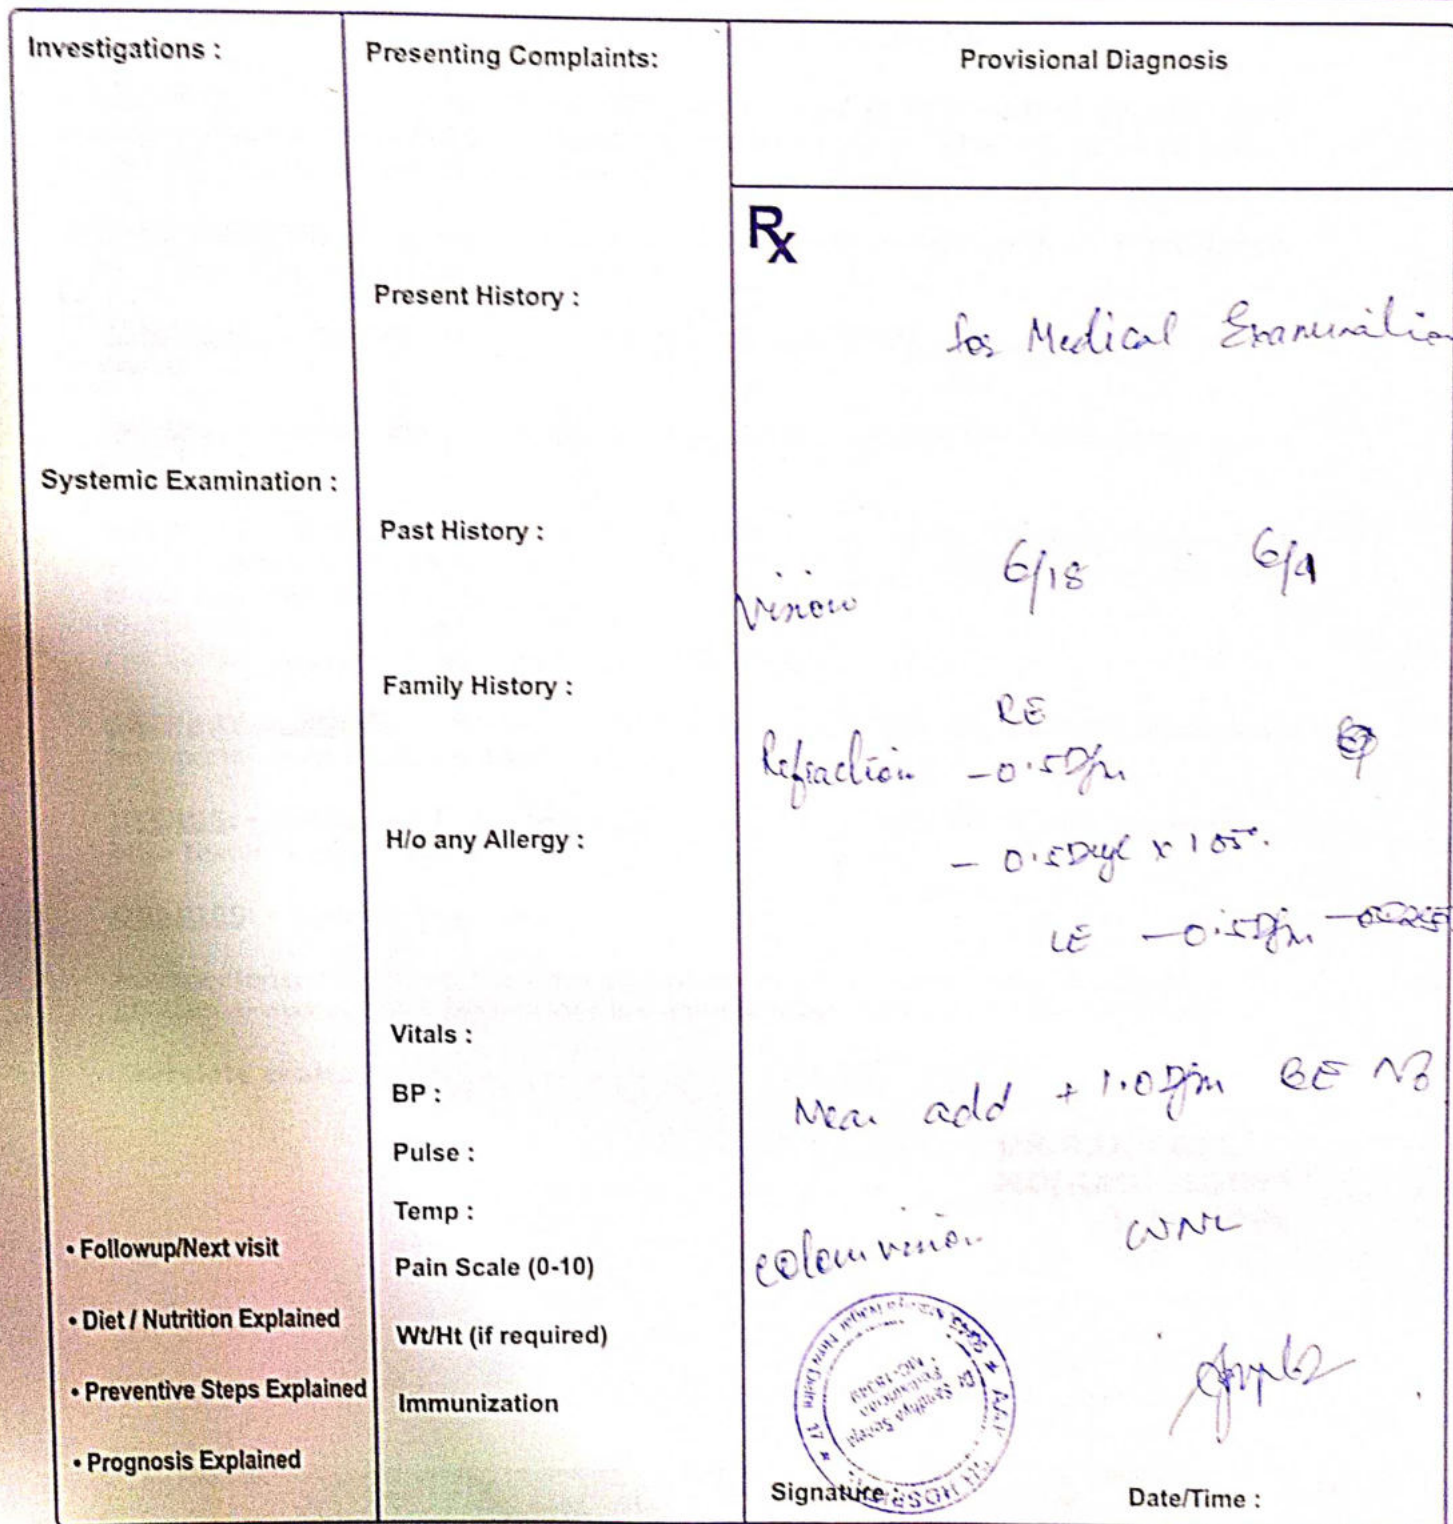 Investigations :
Systemic Examination :
• Followup/Next visit
• Diet / Nutrition Explained
• Preventive Steps Explained
• Prognosis Explained
Presenting Complaints:
Present History :
Past History :
Family History :
H/o any Allergy :
Vitals :
BP :
Pulse :
Temp :
Pain Scale (0-10)
Wt/Ht (if required)
Immunization
Provisional Diagnosis
Rx
for Medical Examination
Vision 6/18 6/9
RE
Refraction -0.5D
- 0.5D x 105°
LE -0.5D
Near add +1.0D BE N6
Colour vision WNL
Dr Sandhya
Signature :
Date/Time :